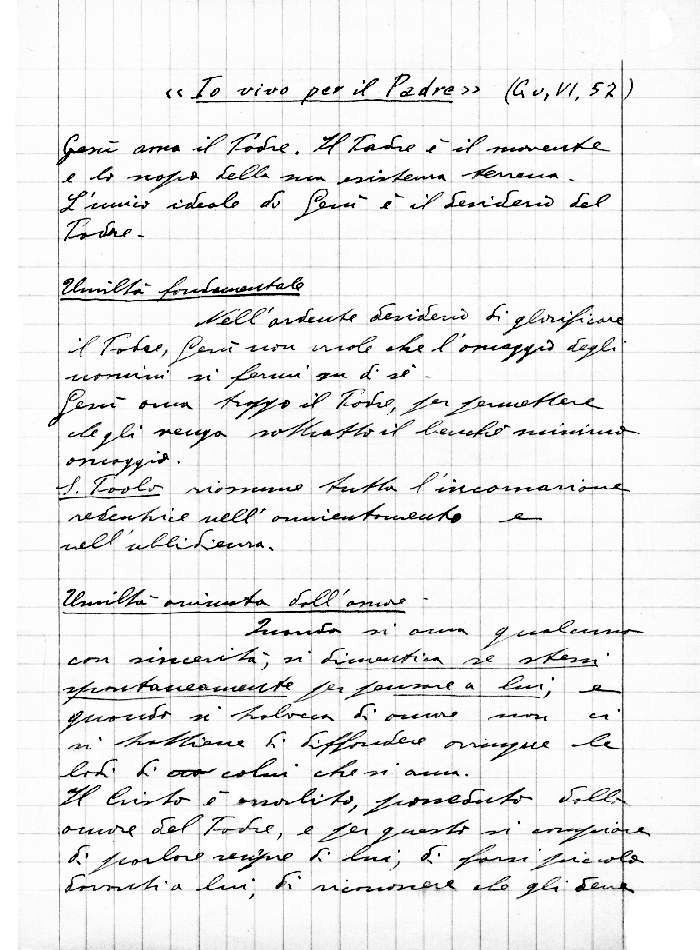 «Io vivo per il Padre» (Gv, VI, 57)
Gesù ama il Padre. Il Padre è il movente
e lo scopo della sua esistenza terrena.
L'unico ideale di Gesù è il desiderio del
Padre.
Umiltà fondamentale
Nell'ardente desiderio di glorificare
il Padre, Gesù non vuole che l'omaggio degli
uomini si fermi su di sè.
Gesù ama troppo il Padre, per permettere
che gli venga sottratto il benché minimo
omaggio.
S. Paolo riassume tutta l'incarnazione
redentrice nell'annientamento e
nell'ubbidienza.
Umiltà animata dall'amore.
Quando si ama qualcuno
con sincerità, si dimentica se stessi
spontaneamente per pensare a lui, e
quando si trabocca di amore non ci
si trattiene di diffondere ovunque le
lodi di colui che si ama.
Il Cristo è assorbito, posseduto dallo
amore del Padre, e per questo si compiace
di parlare sempre di lui, di farsi piccolo
davanti a lui, di riconoscere che gli deve